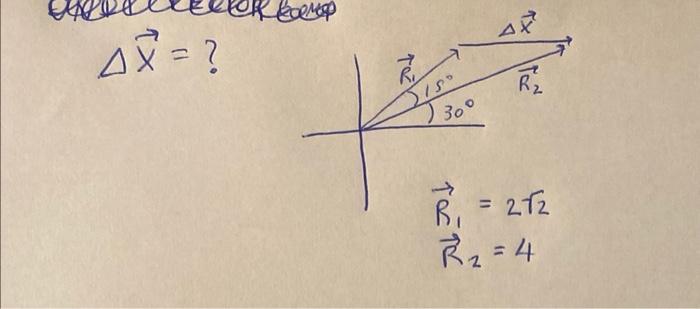 Δx⃗ = ?
Δx⃗
R⃗₁
15°
R⃗₂
30°
R⃗₁ = 2√2
R⃗₂ = 4